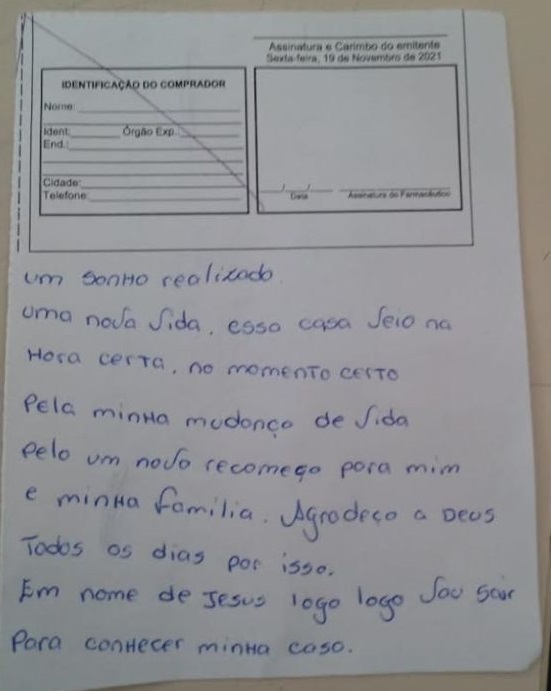 Assinatura e Carimbo do emitente
Sexta-feira, 19 de Novembro de 2021
IDENTIFICAÇÃO DO COMPRADOR
Nome:
Ident: Órgão Exp.:
End.:
Cidade:
Telefone:
__/__/__
Data Assinatura do Farmacêutico
um sonho realizado.
uma nova vida, essa casa veio na
Hora certa, no momento certo
Pela minha mudança de vida
Pelo um novo recomeço para mim
e minha família. Agradeço a Deus
Todos os dias por isso.
Em nome de Jesus logo logo vou sair
Para conhecer minha casa.